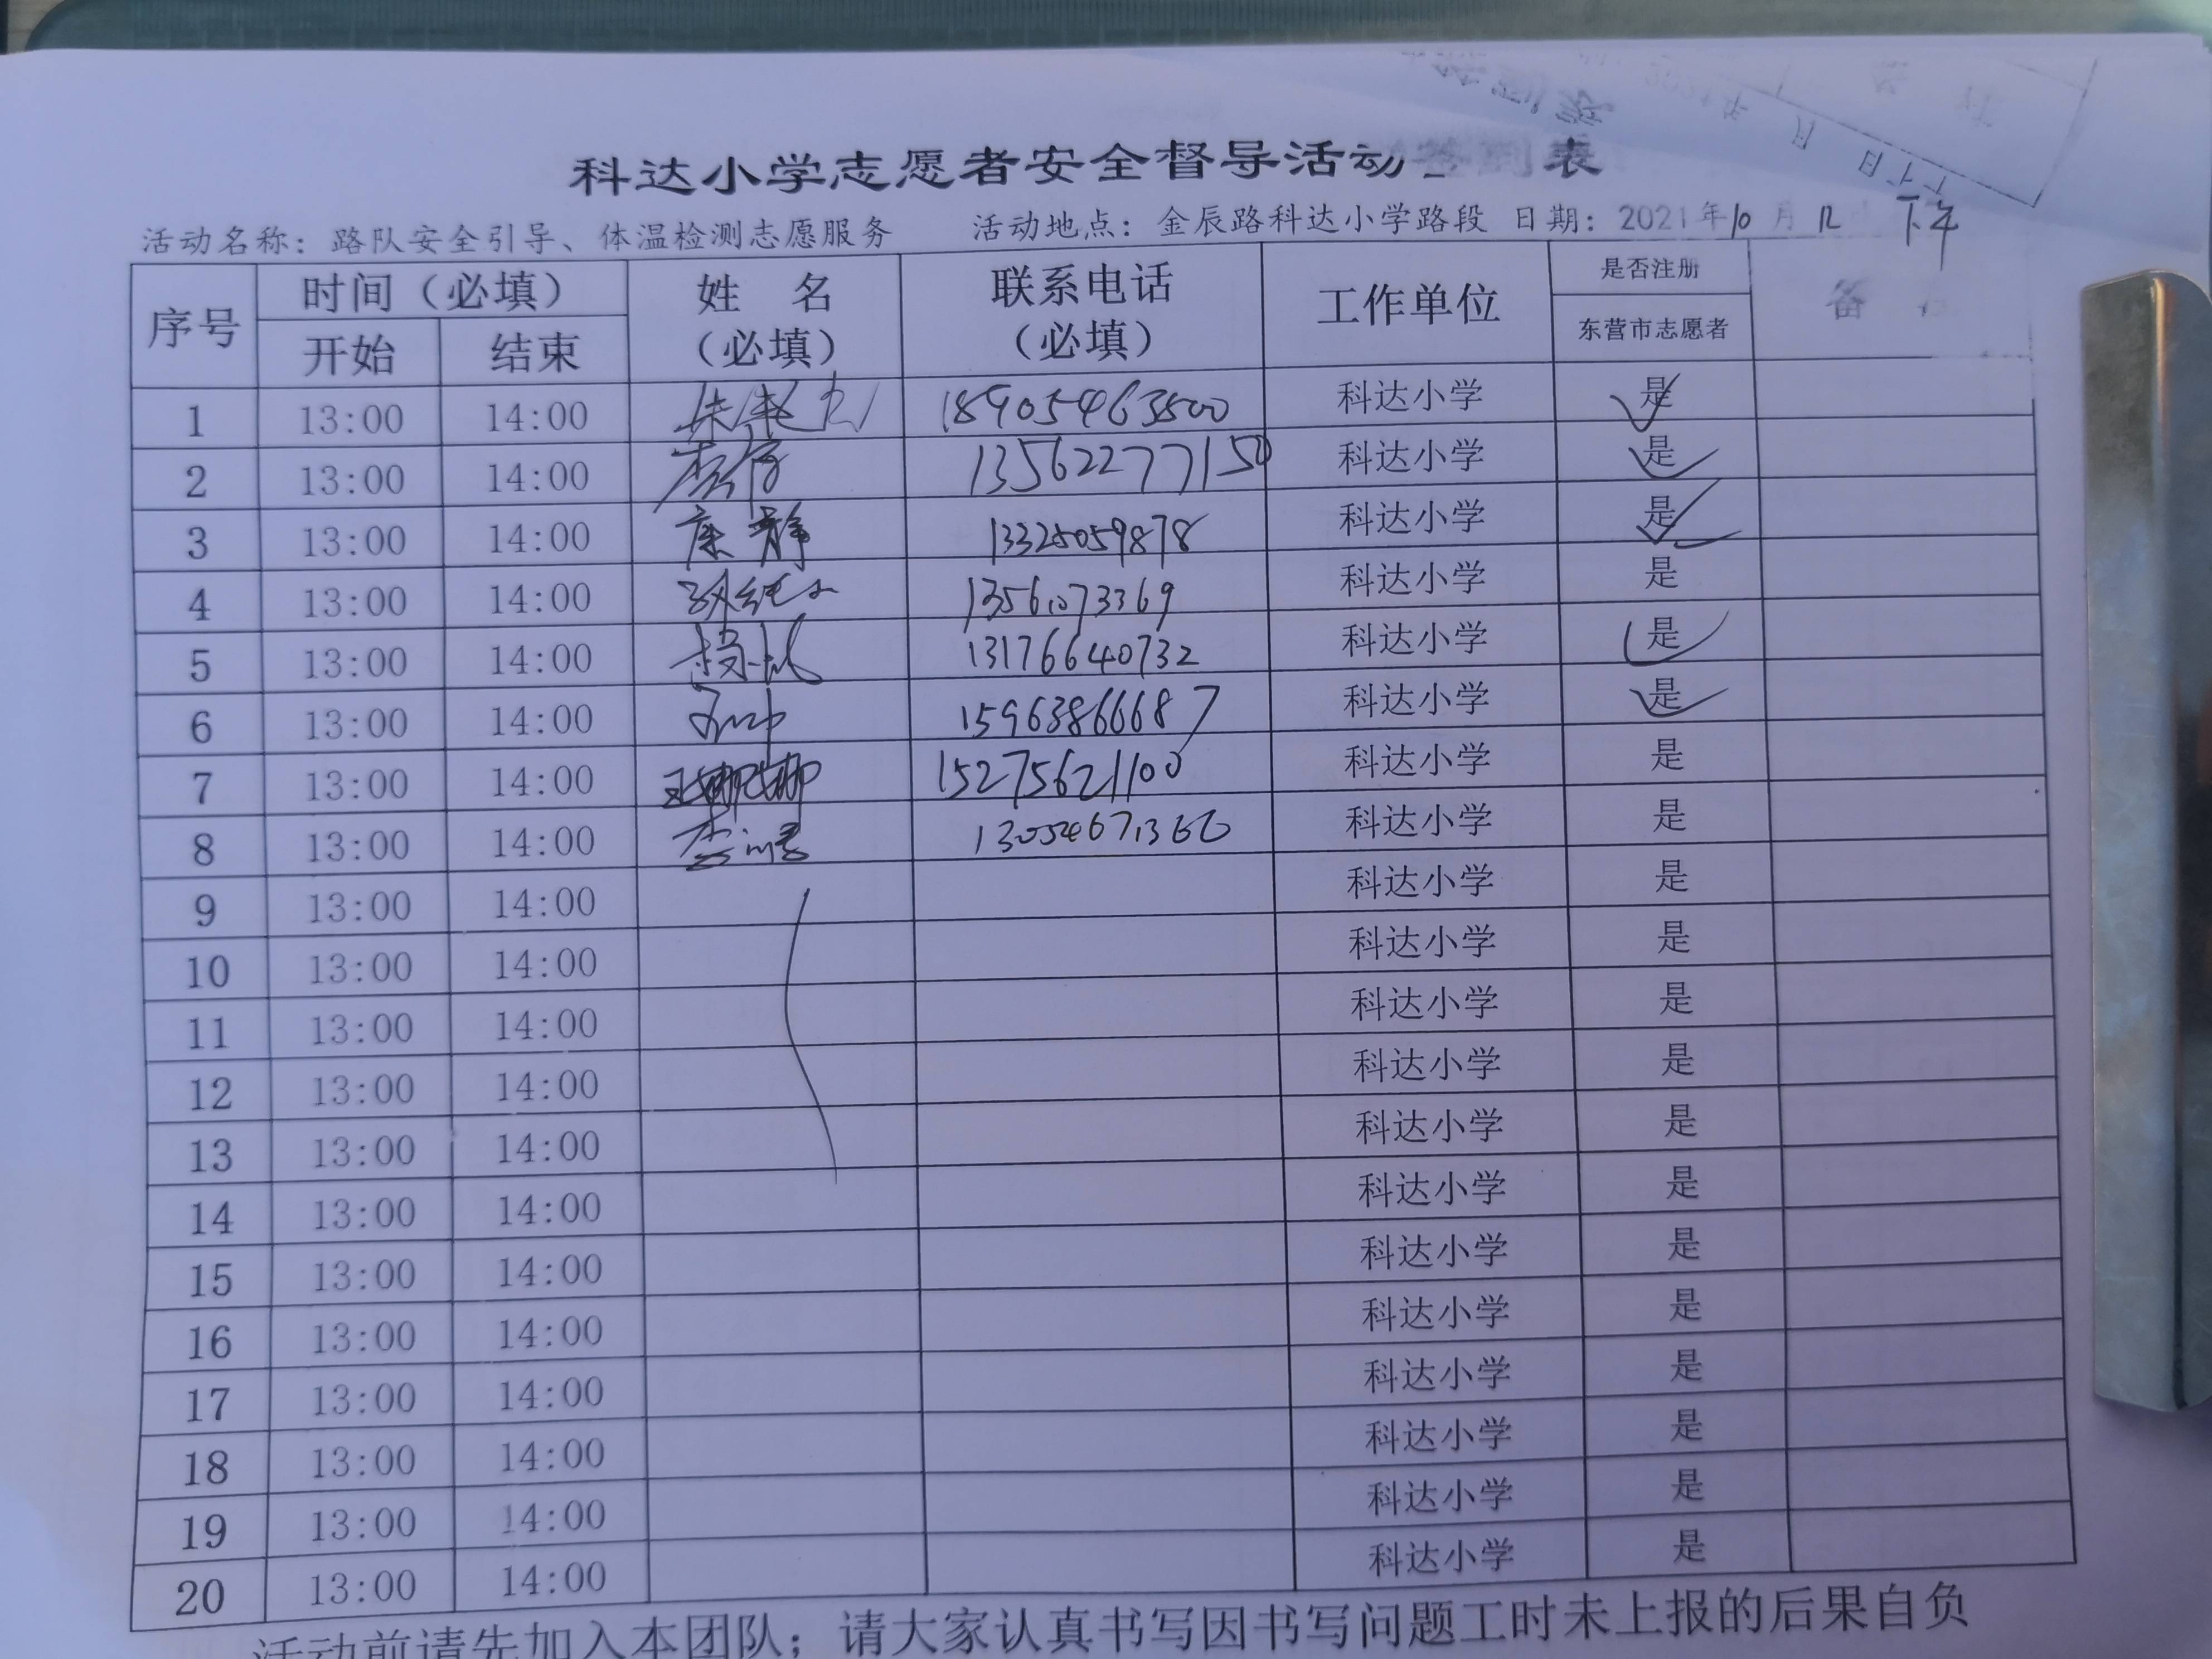 科达小学志愿者安全督导活动签到表
活动名称：路队安全引导、体温检测志愿服务 活动地点：金辰路科达小学路段 日期：2021年10月12 下午
序号 时间（必填） 姓 名（必填） 联系电话（必填） 工作单位 是否注册 备
开始 结束 东营市志愿者
1 13:00 14:00 18905463500 科达小学 是
2 13:00 14:00 13562277150 科达小学 是
3 13:00 14:00 康静 13325059878 科达小学 是
4 13:00 14:00 13561073369 科达小学 是
5 13:00 14:00 13176640732 科达小学 是
6 13:00 14:00 15963866687 科达小学 是
7 13:00 14:00 王娜娜 15275621100 科达小学 是
8 13:00 14:00 13054671366 科达小学 是
9 13:00 14:00 科达小学 是
10 13:00 14:00 科达小学 是
11 13:00 14:00 科达小学 是
12 13:00 14:00 科达小学 是
13 13:00 14:00 科达小学 是
14 13:00 14:00 科达小学 是
15 13:00 14:00 科达小学 是
16 13:00 14:00 科达小学 是
17 13:00 14:00 科达小学 是
18 13:00 14:00 科达小学 是
19 13:00 14:00 科达小学 是
20 13:00 14:00 科达小学 是
活动前请先加入本团队；请大家认真书写因书写问题工时未上报的后果自负